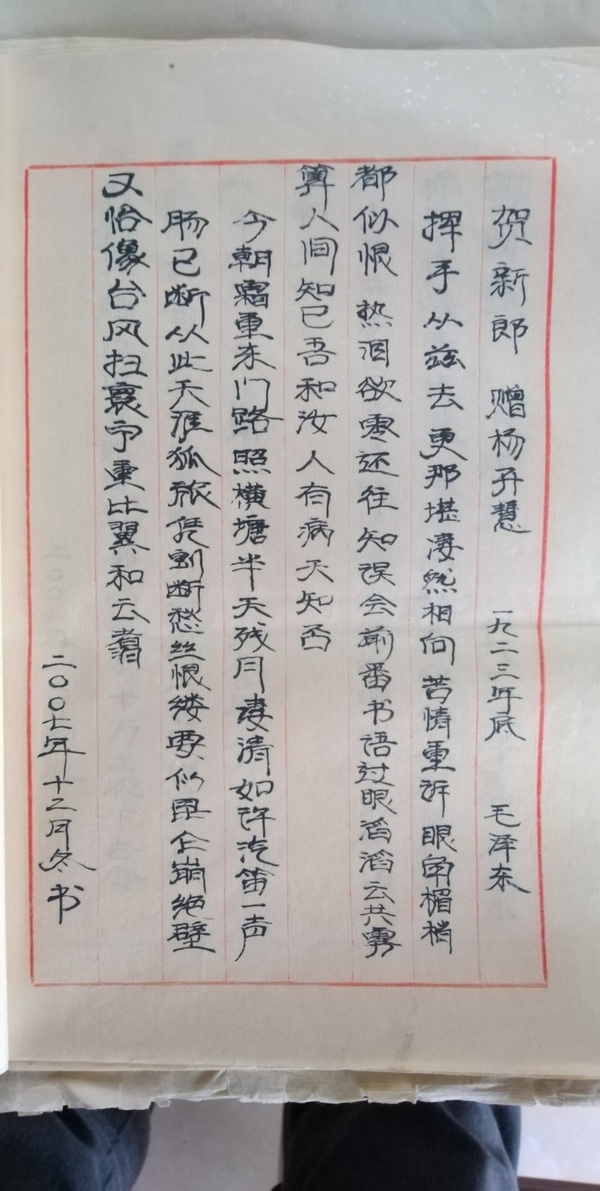 贺新郎 赠杨开慧 一九二三年底 毛泽东
挥手从兹去更那堪凄然相向苦情重诉眼角楣梢
都似恨热泪欲零还往知误会前番书语过眼滔滔云共雾
算人间知己吾和汝人有病天知否
今朝霜重东门路照横塘半天残月凄清如许汽笛一声
肠已断从此天涯孤旅凭割断愁丝恨缕要似昆仑崩绝壁
又恰像台风扫寰宇重比翼和云翥
二〇〇七年十二月冬书